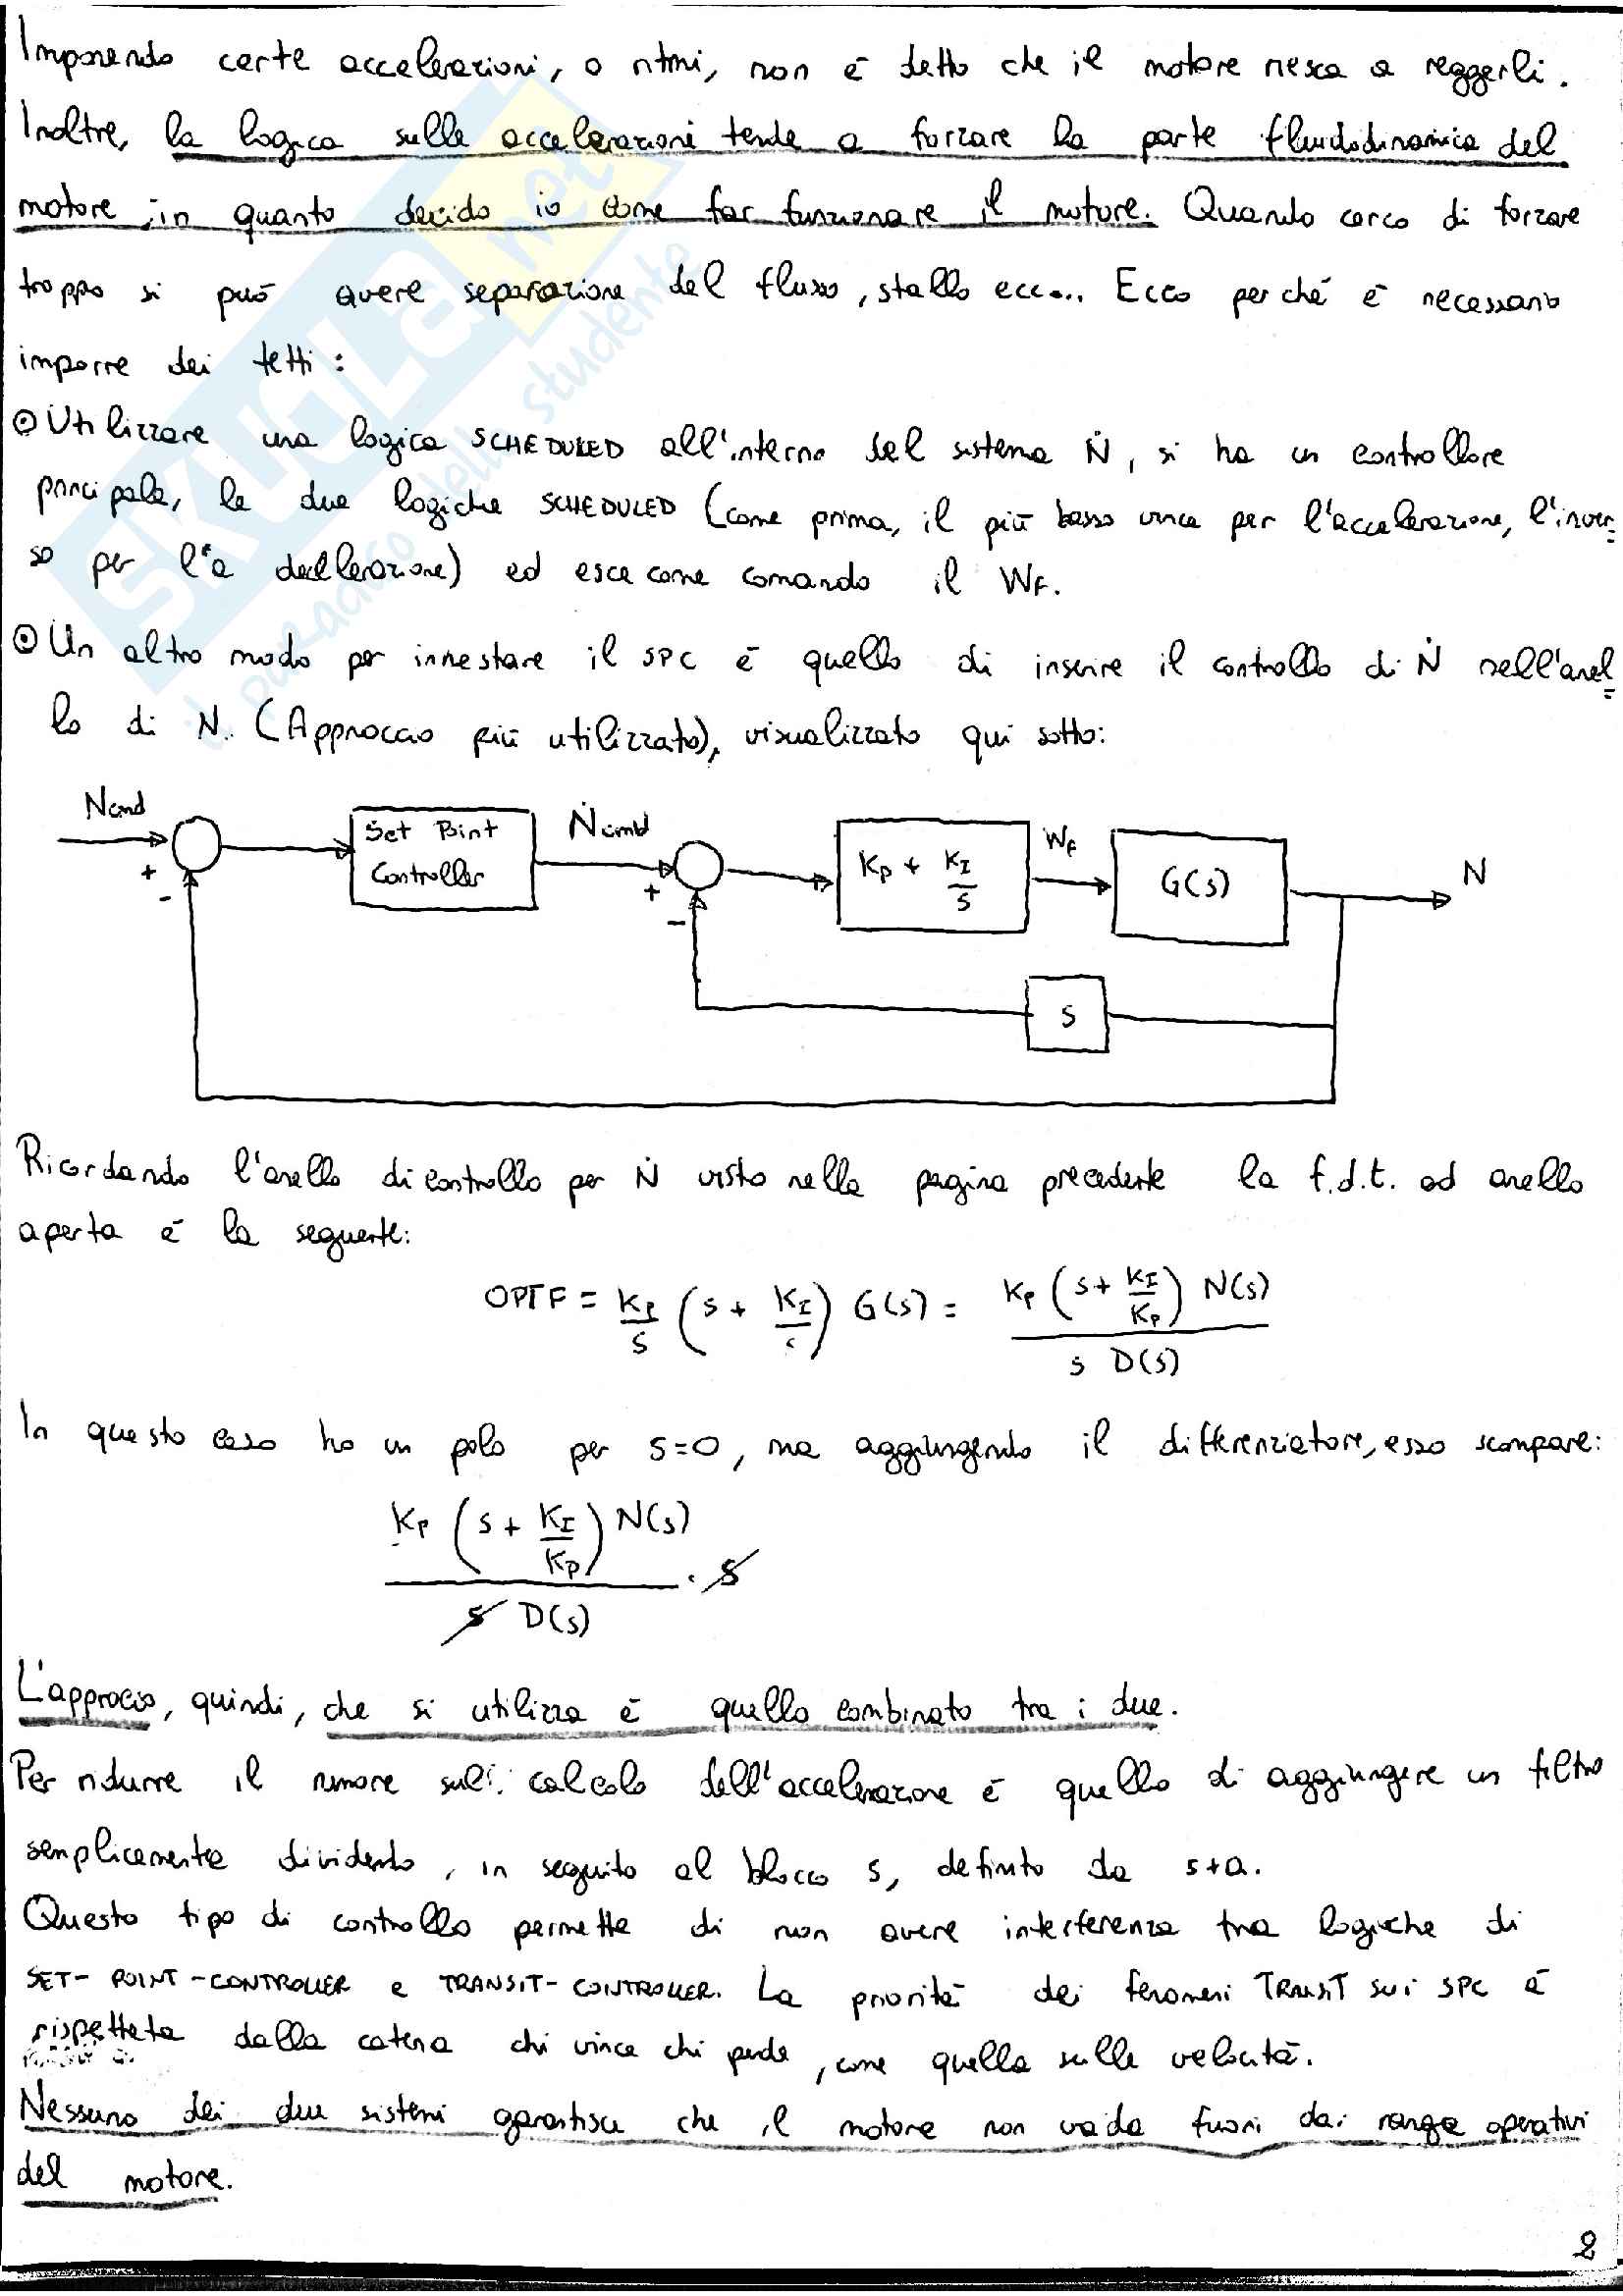 Imponendo certe accelerazioni, o ritmi, non è detto che il motore riesca a reggerli.
Inoltre, la logica sulle accelerazioni tende a forzare la parte fluidodinamica del
motore, in quanto decido io come far funzionare il motore. Quando cerco di forzare
troppo si può avere separazione del flusso, stallo ecc... Ecco perché è necessario
imporre dei tetti:
⊙ Utilizzare una logica SCHEDULED all'interno del sistema Ṅ, si ha un controllore
principale, le due logiche SCHEDULED (come prima, il più basso vince per l'accelerazione, l'inver=
so per l'a decellerazione) ed esce come comando il WF.
⊙ Un altro modo per innestare il SPC è quello di inserire il controllo di Ṅ nell'anel=
lo di N. (Approccio più utilizzato), visualizzato qui sotto:
Ncmd + - Set Point Controller Ṅcmd + - KP + KI/S WF G(s) N
S
Ricordando l'anello di controllo per Ṅ visto nella pagina precedente la f.d.t. ad anello
aperta è la seguente:
OPTF = KP/S (s + KI/) G(s) = KP (s + KI/KP) N(s) / s D(s)
In questo caso ho un polo per s=0, ma aggiungendo il differenziatore, esso scompare:
KP (s + KI/KP) N(s) / s D(s) · s
L'approcio, quindi, che si utilizza è quello combinato tra i due.
Per ridurre il rumore sul calcolo dell'accelerazione è quello di aggiungere un filtro
semplicemente dividendo, in seguito al blocco s, definito da s+a.
Questo tipo di controllo permette di non avere interferenza tra logiche di
SET-POINT-CONTROLLER e TRANSIT-CONTROLLER. La priorità dei fenomeni sui SPC è
rispettata dalla catena chi vince chi perde, come quella sulle velocità.
Nessuno dei due sistemi garantisce che il motore non vada fuori dai range operativi
del motore.
2
SKUOLA.net
il paradiso dello studente